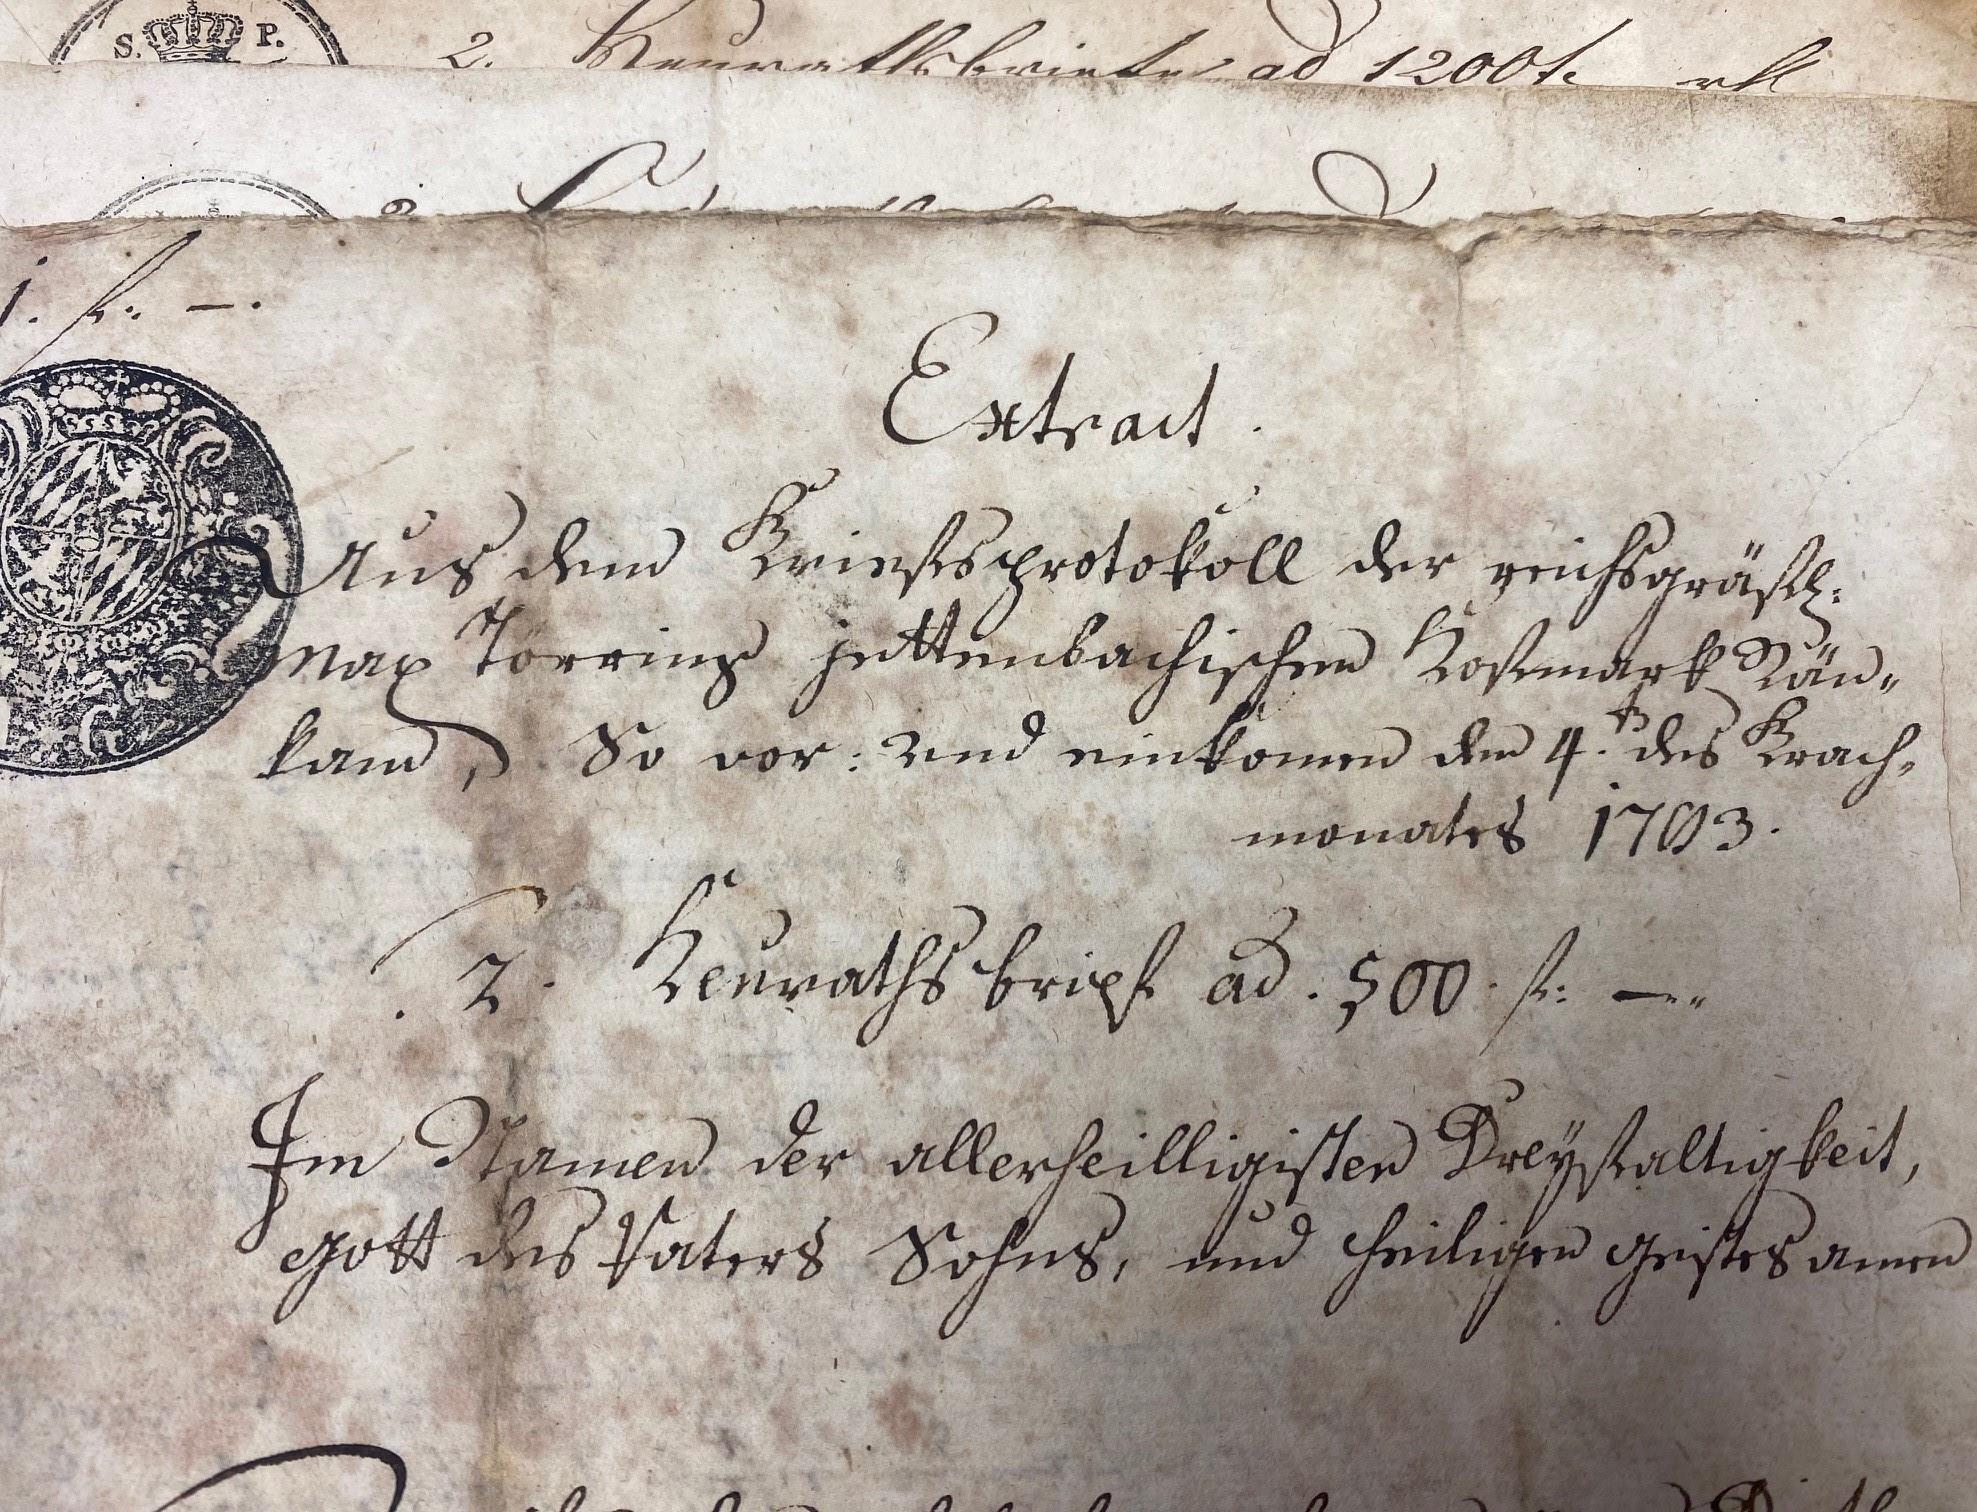 S. P.
2. Heurathsbriefe ad 1200 f.
1. f: —.
Extract.
Aus dem Briefsprotokoll der reichsgräfl:
Max Törring jettenbachischen Hofmark Rän„
kam, So vor: und einkomen den 4.tn des Brach„
monates 1793.
2. Heuraths brief ad. 500. f: —„
Im Namen der allerheilligisten Dreyfaltigkeit,
gott des Vaters Sohns, und heiligen geistes amen